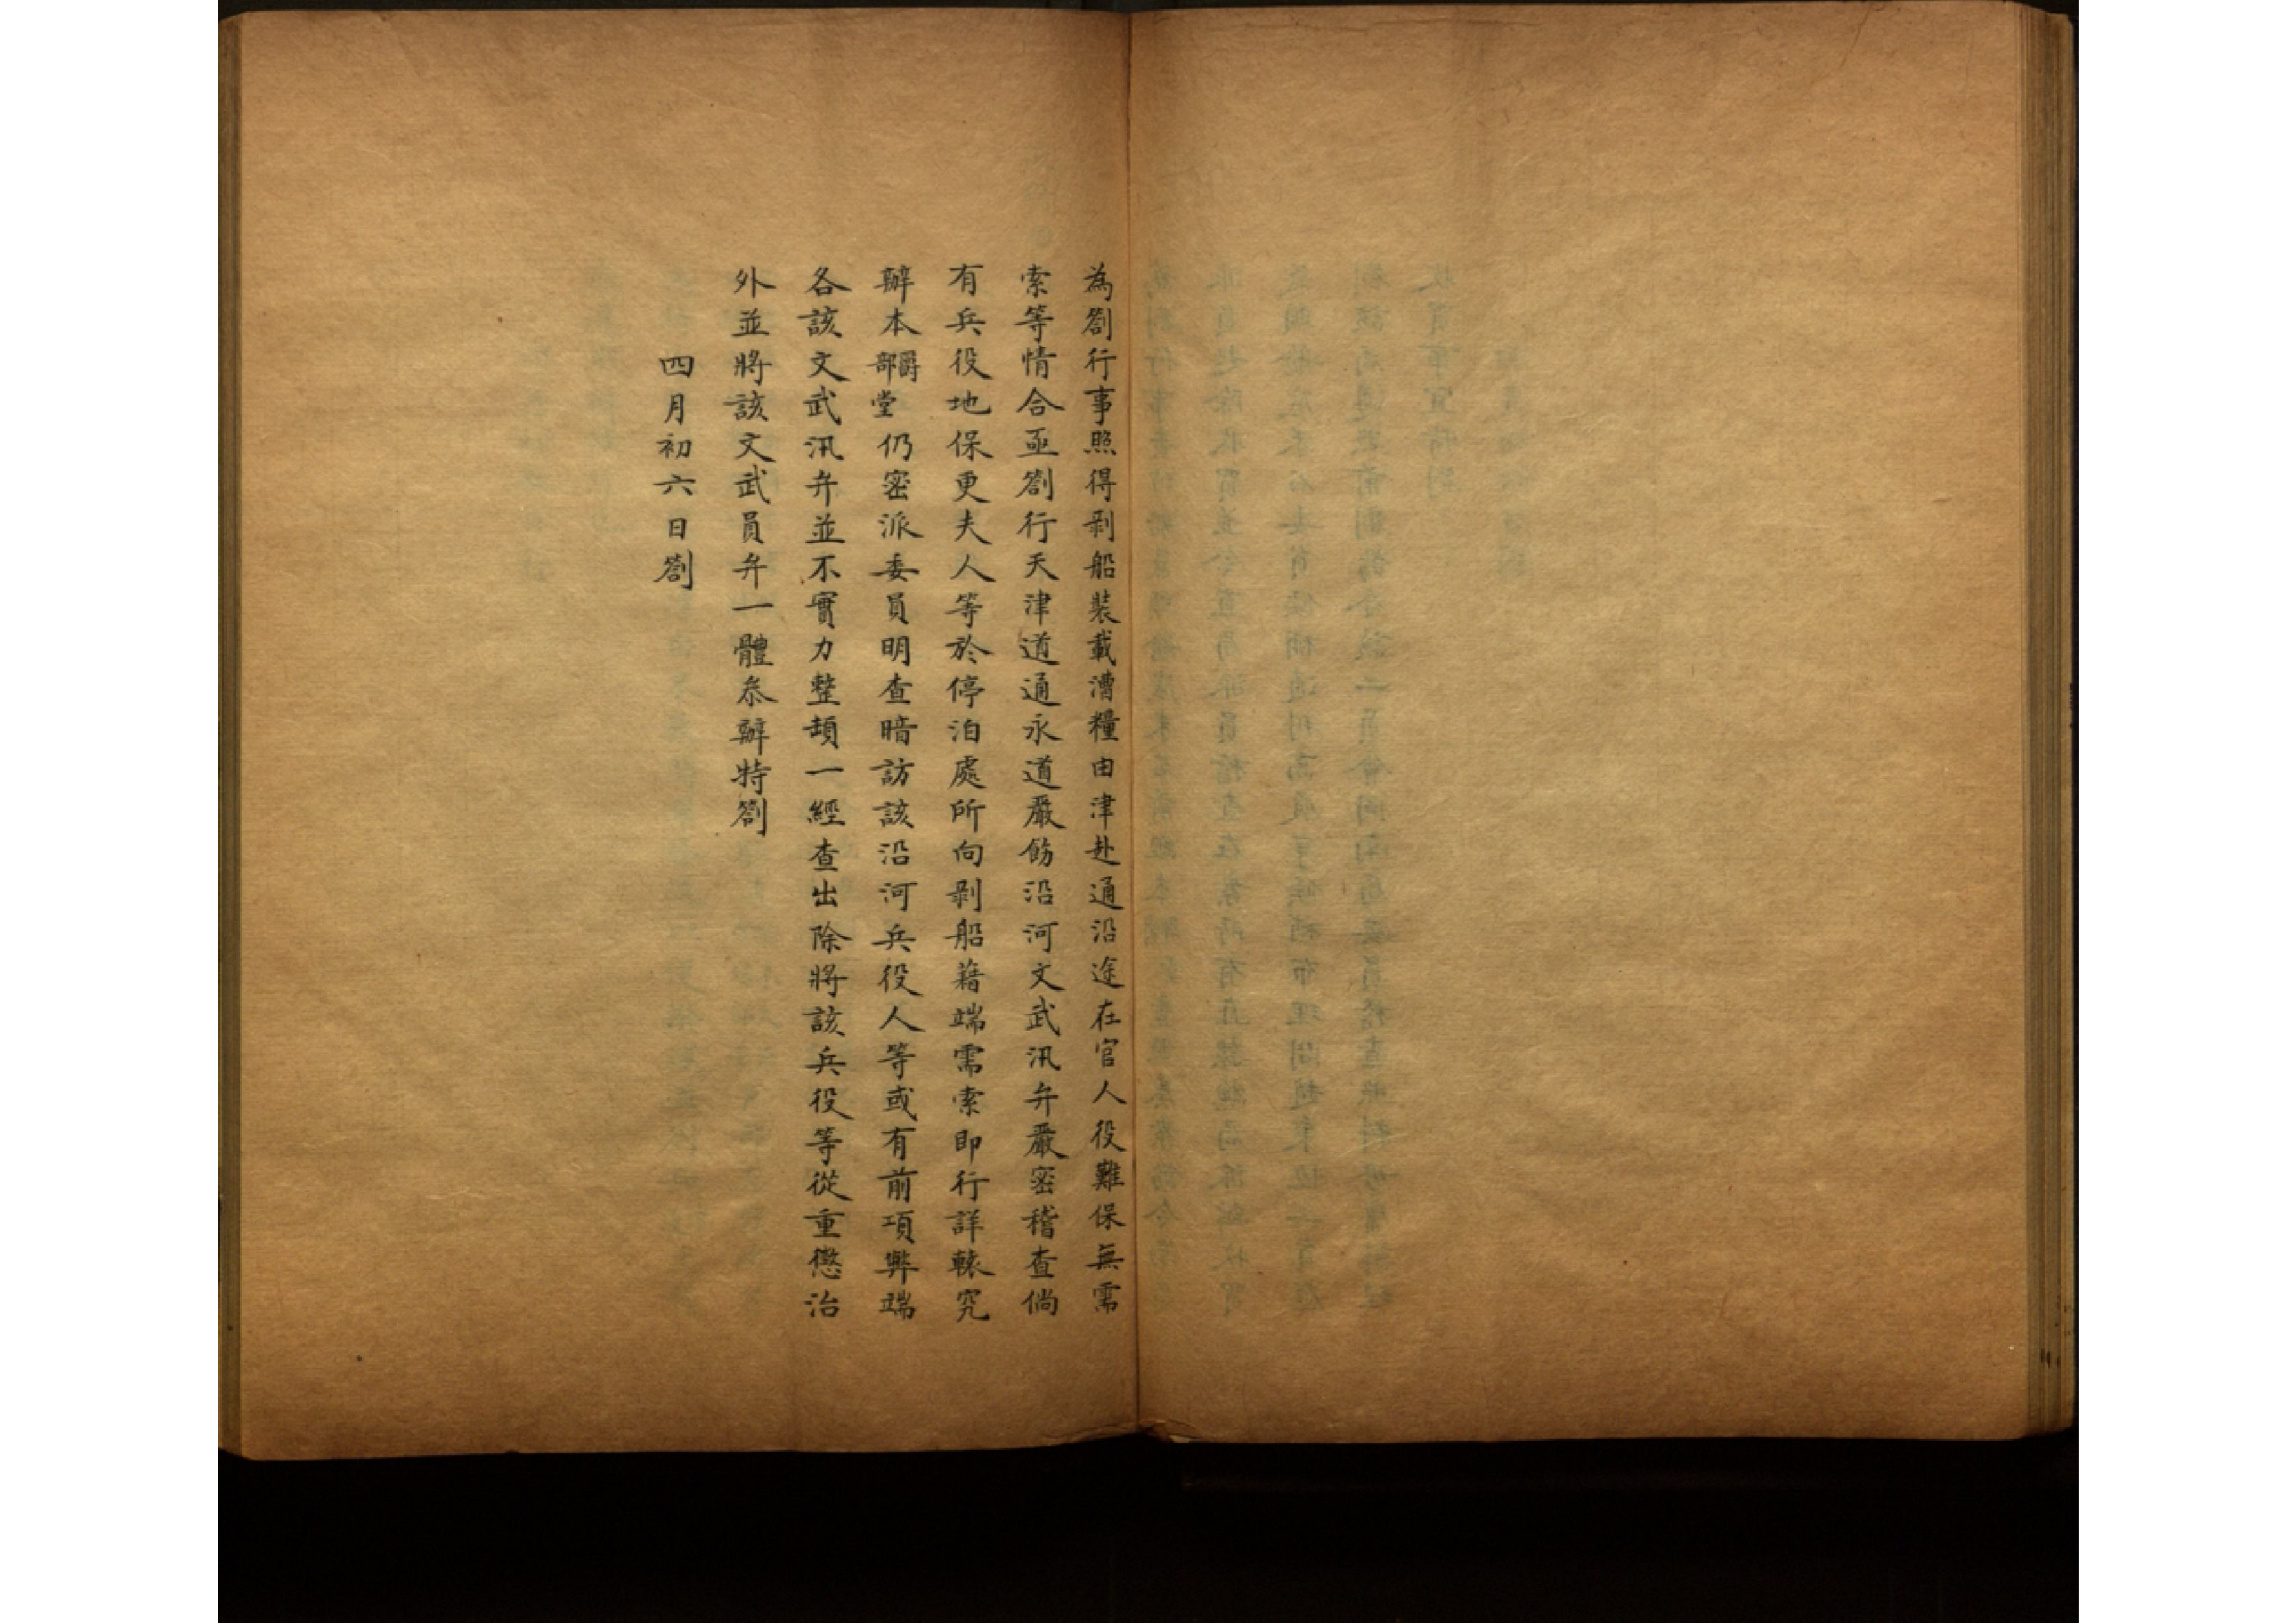 為劄行事照得剥船裝載漕糧由津赴通沿途在官人役難保無需
索等情合亟劄行天津道通永道嚴飭沿河文武汛弁嚴密稽查倘
有兵役地保更夫人等於停泊處所向剥船藉端需索即行詳轅究
辦本爵部堂仍密派委員明查暗訪該沿河兵役人等或有前項弊端
各該文武汛弁並不實力整頓一經查出除將該兵役等從重懲治
外並將該文武員弁一體叅辦特劄
四月初六日劄